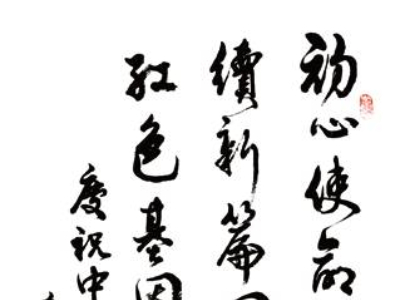 初心使命
續新篇
紅色基因
慶祝中